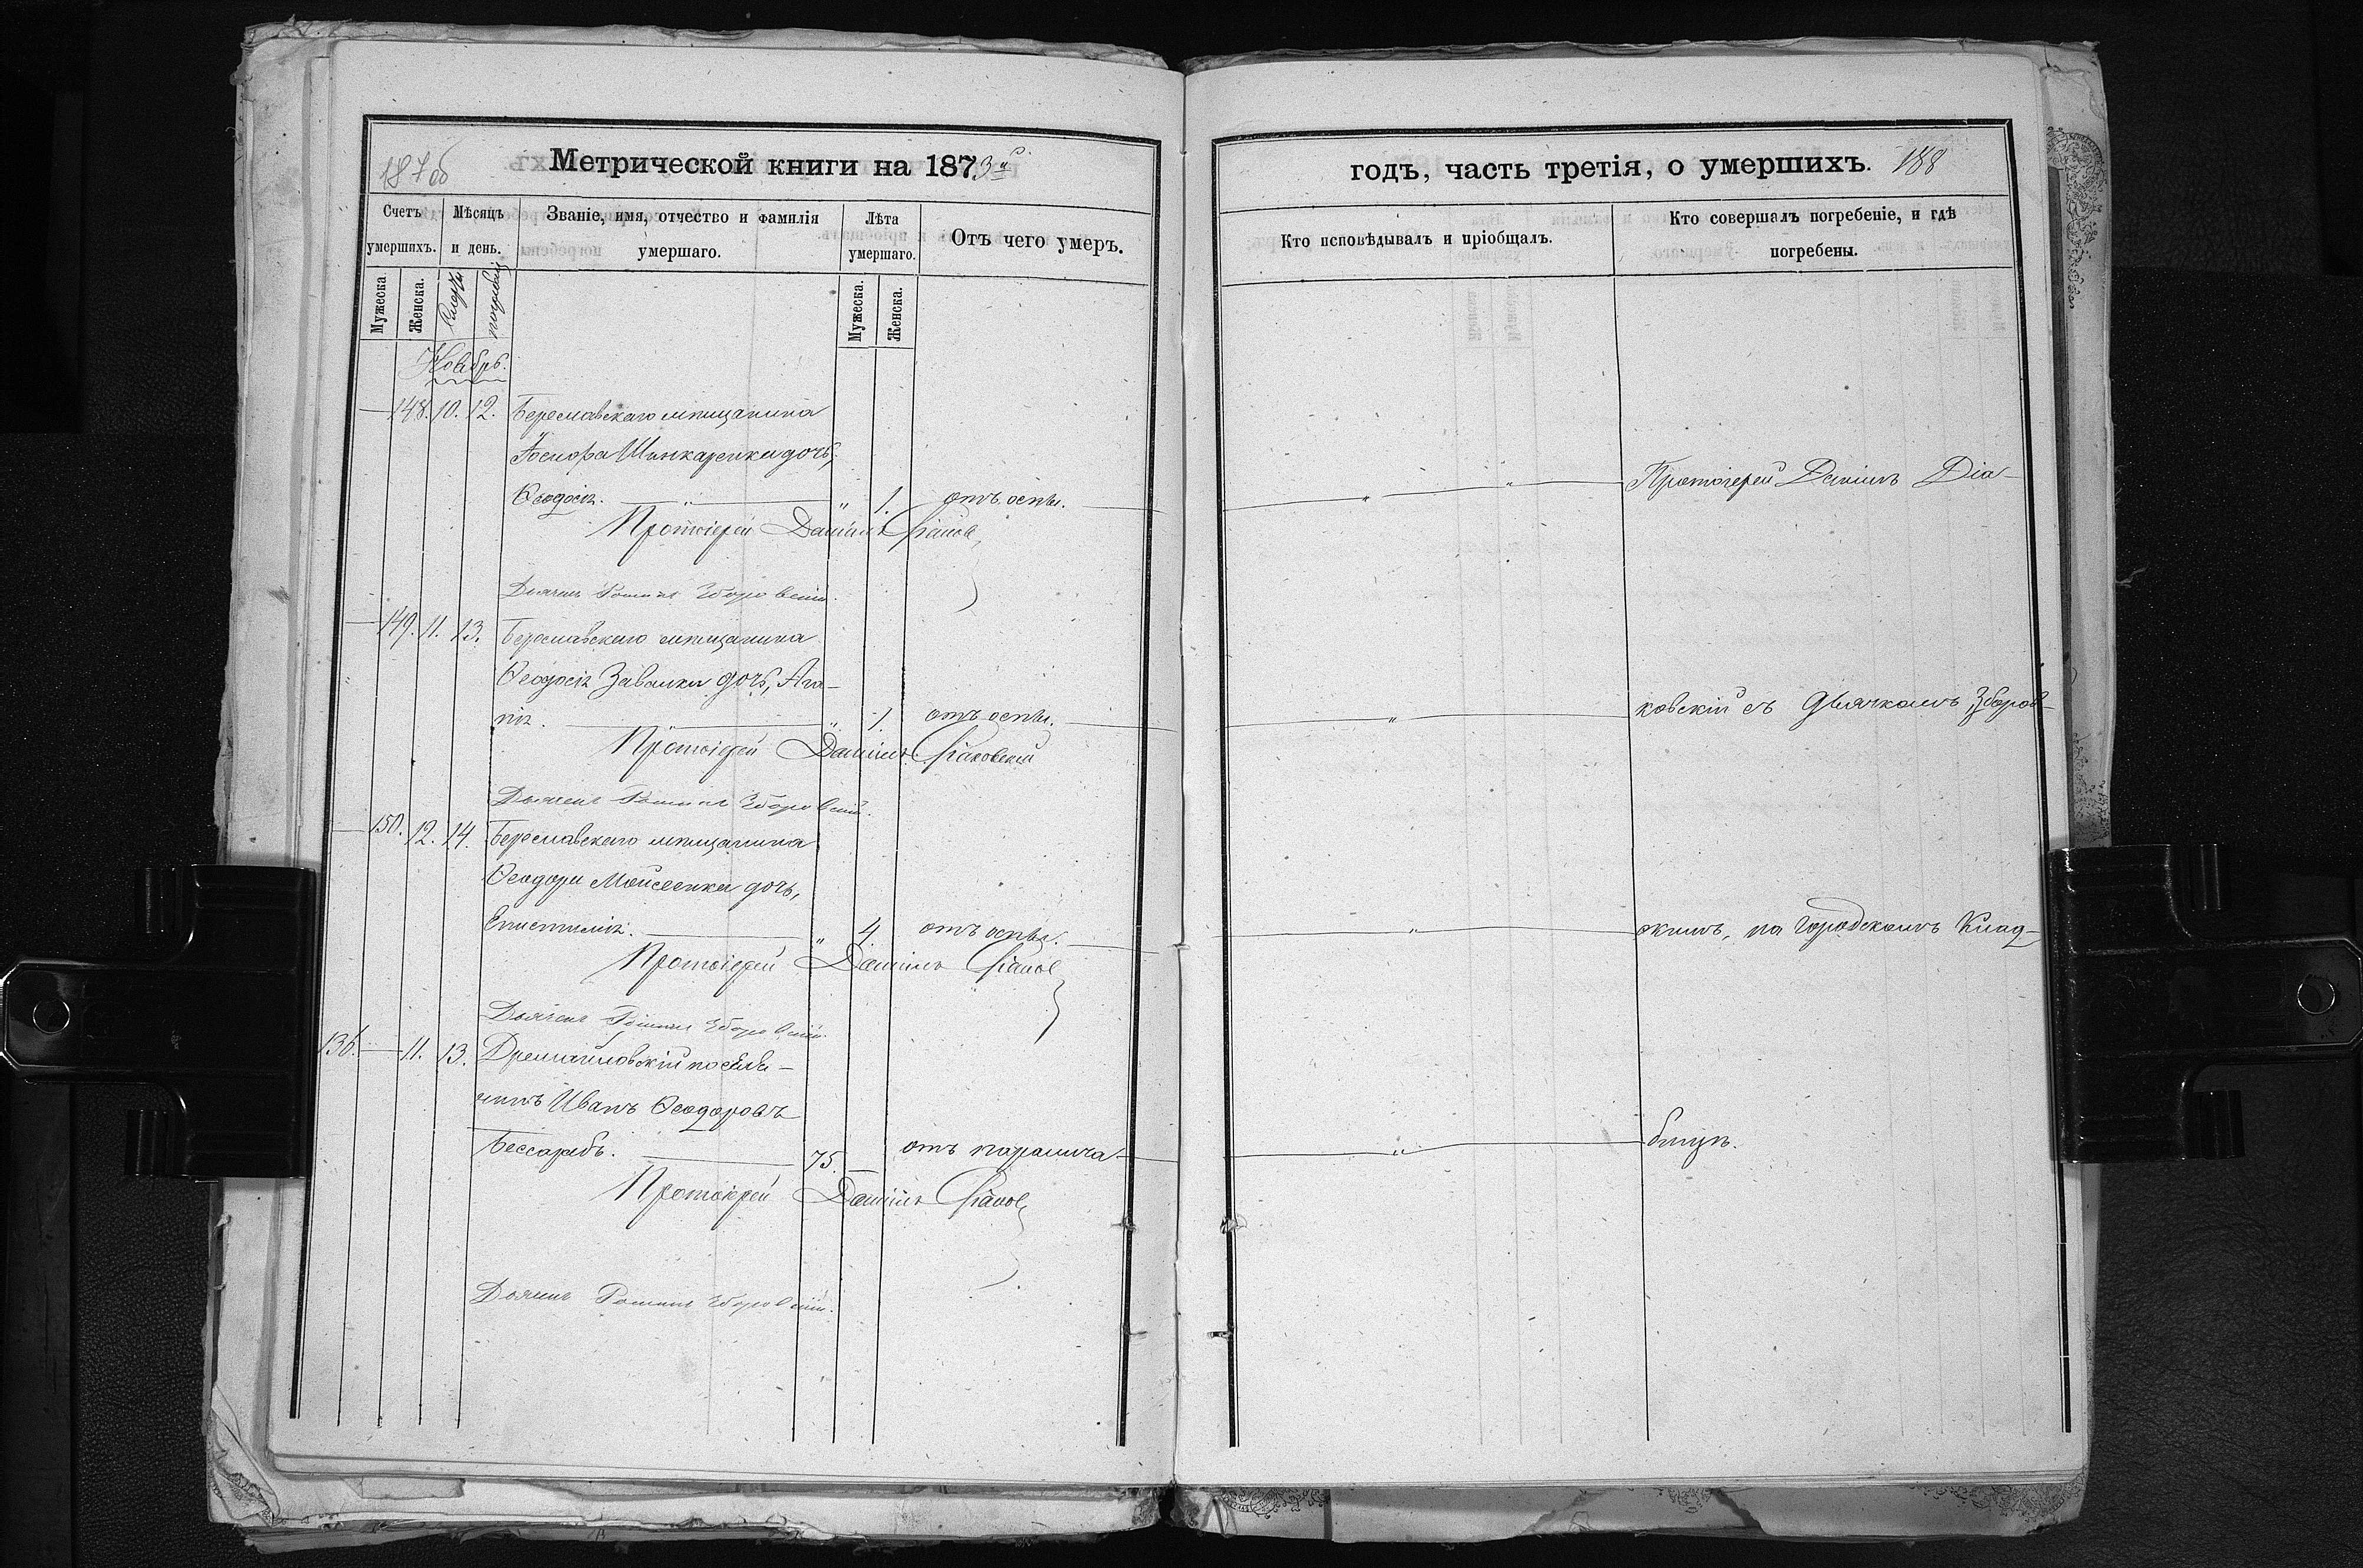 187об
Метрической книги на 1873й
Счетъ умершихъ.
Мѣсяцъ и день.
Званіе, имя, отчество и фамилія умершаго.
Лѣта умершаго.
Отъ чего умеръ.
Мужеска
Женска.
погребенія
Мужеска.
Женска.
Ноябрь.
— 148. 10. 12. Береславскаго мѣщанина
Іосифа Шинкаренки дочь,
Ѳеодосія. — „ — „ 1. отъ оспы.
Протоіерей Даніилъ
Дьячекъ Романъ Зборовскій.
— 149. 11. 13. Береславскаго мѣщанина
Ѳеодосія Завалки дочь, Ага-
пія. — „ — „ 1. отъ оспы.
Протоіерей Даніилъ Діаковскій
Дьячекъ Романъ Зборовскій.
— 150. 12. 14. Береславскаго мѣщанина
Ѳеодора Моисеенка дочь,
Епистимія. — „ 4. отъ оспы.
Протоіерей Даніилъ
Дьячекъ Романъ Зборовскій.
136. — 11. 13. Дремайловскій поселя-
нинъ Иванъ Ѳеодоровъ
Бессарабъ. — 75. — отъ паралича
Протоіерей Даніилъ
Дьячекъ Романъ Зборовскій.
годъ, часть третія, о умершихъ. 188
Кто исповѣдывалъ и пріобщалъ.
Кто совершалъ погребеніе, и гдѣ погребены.
— „ — „ — Протоіерей Даніилъ Діа-
— „ — ковскій съ дьячкомъ Зборов-
— „ — скимъ, на городскомъ клад-
— „ — бищѣ.